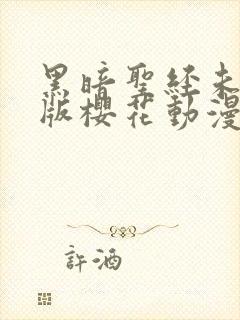 黑暗聖経未
版櫻花動漫
許酒